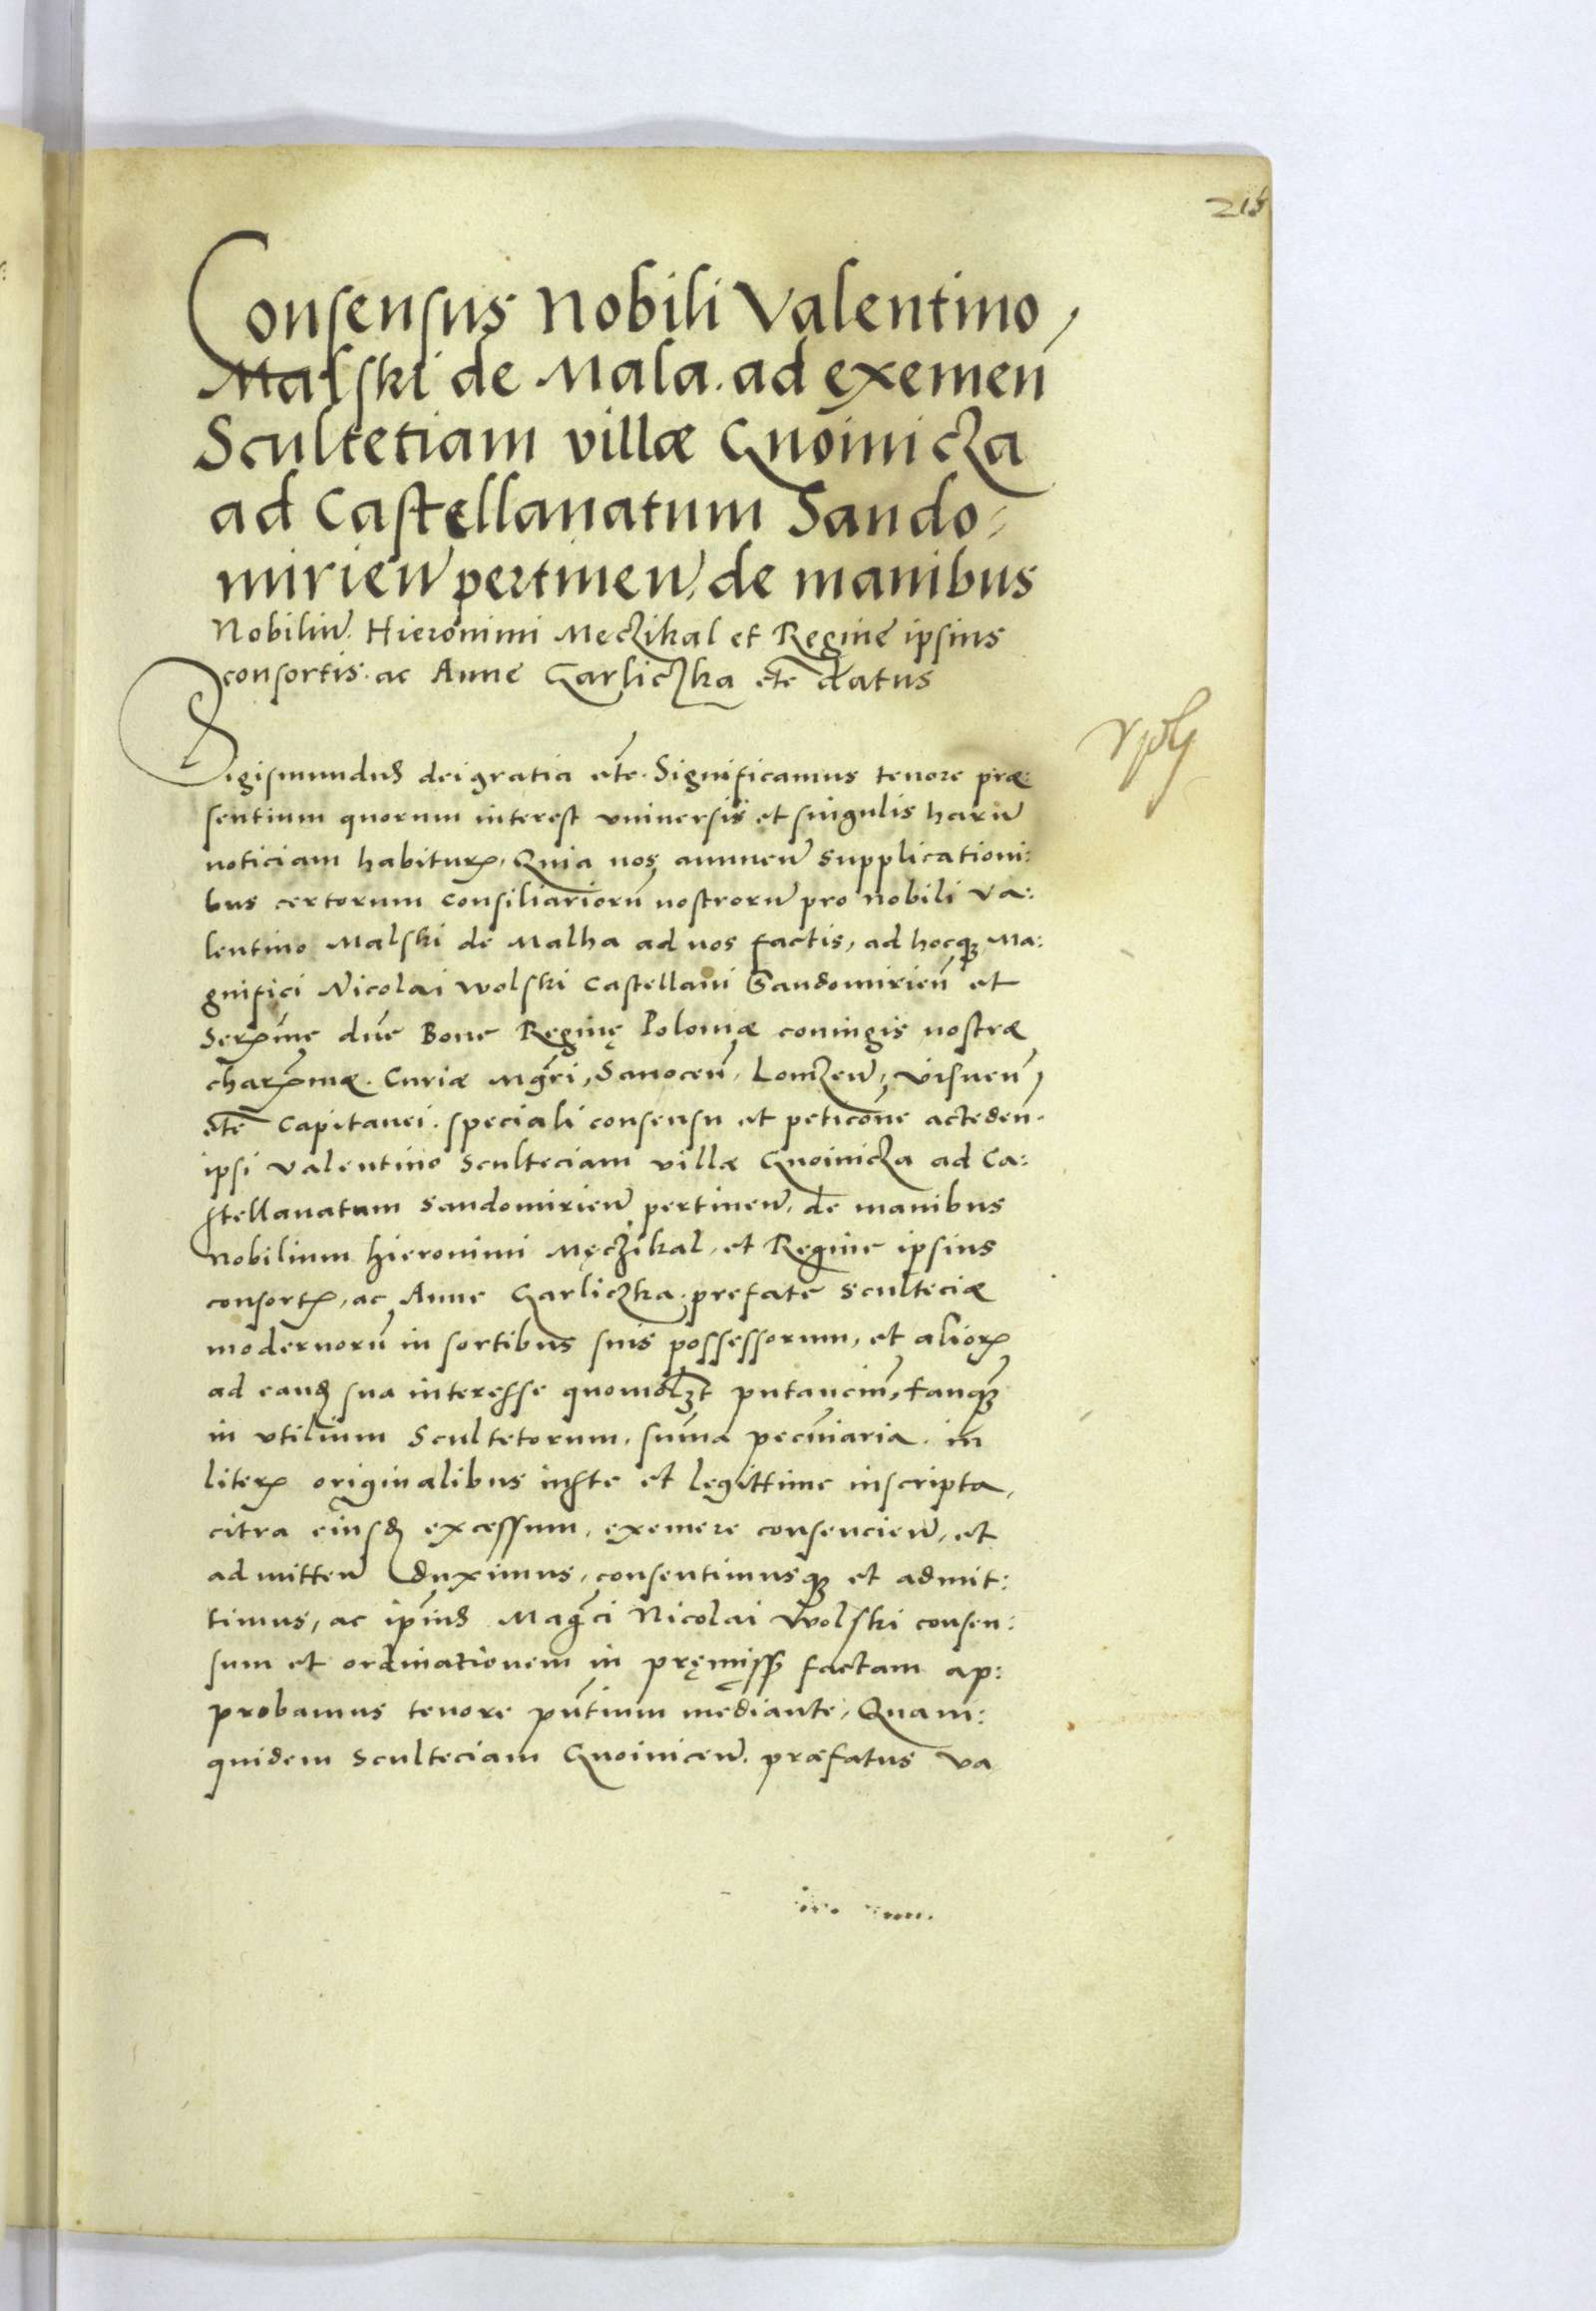 215
Consensus Nobili Valentino,
Malski de Mala. ad exemen̄
Scultetiam villæ Gnoiniczа
ad Castellanatum Sando:
mirien̄ pertinen̄, de manibus
Nobiliū. Hieronimi Meczikal et Regine ipsius
consortis. ac Anne Garliczka etc̄ datus
Sigismundus dei gratia etc̄. Significamus tenore præ:
sentium quorum interest vniuersis et singulis harū
noticiam habiturꝭ, Quia nos annuen̄ supplicationi:
bus certorum consiliariorū nostrorū pro nobili Va:
lentino Malski de Malha ad nos factis, ad hocqꝫ Ma:
gnifici Nicolai Wolski Castellani Sandomirien̄ et
Serꝭm̄e dn̄e Bone Reginę Poloniæ coniugis nostræ
charꝭmæ. Curiæ Mgr̄i, Sanocen̄, Lomzen̄, Visnen̄,
etc̄ Capitanei. speciali consensu et peticōne acceden̄.
ipsi Valentino Sculteciam villæ Gnoinicza ad Ca:
stellanatum Sandomirien̄ pertinen̄, de manibus
nobilium Hieronimi Męczikal, et Regine ipsius
consortꝭ, ac Anne Garliczka. prefate Sculteciæ
modernorū in sortibus suis possessorum, et aliorꝭ
ad eand̄ sua interesse quomolꝫt putanciū, tanqꝫ
in vtilium Scultetorum. sum̄a pecuniaria. in
literꝭ originalibus iuste et legittime inscripta,
citra eiusd̄ excessum, exemere consencien̄, et
admitten̄ duximus, consentimusqꝫ et admit:
timus, ac ip̄ius Magc̄i Nicolai Wolski consen:
sum et ordinationem in pręmissꝭ factam ap:
probamus tenore pn̄tium mediante, Quam:
quidem Sculteciam Gnoinicen̄. præfatus Va